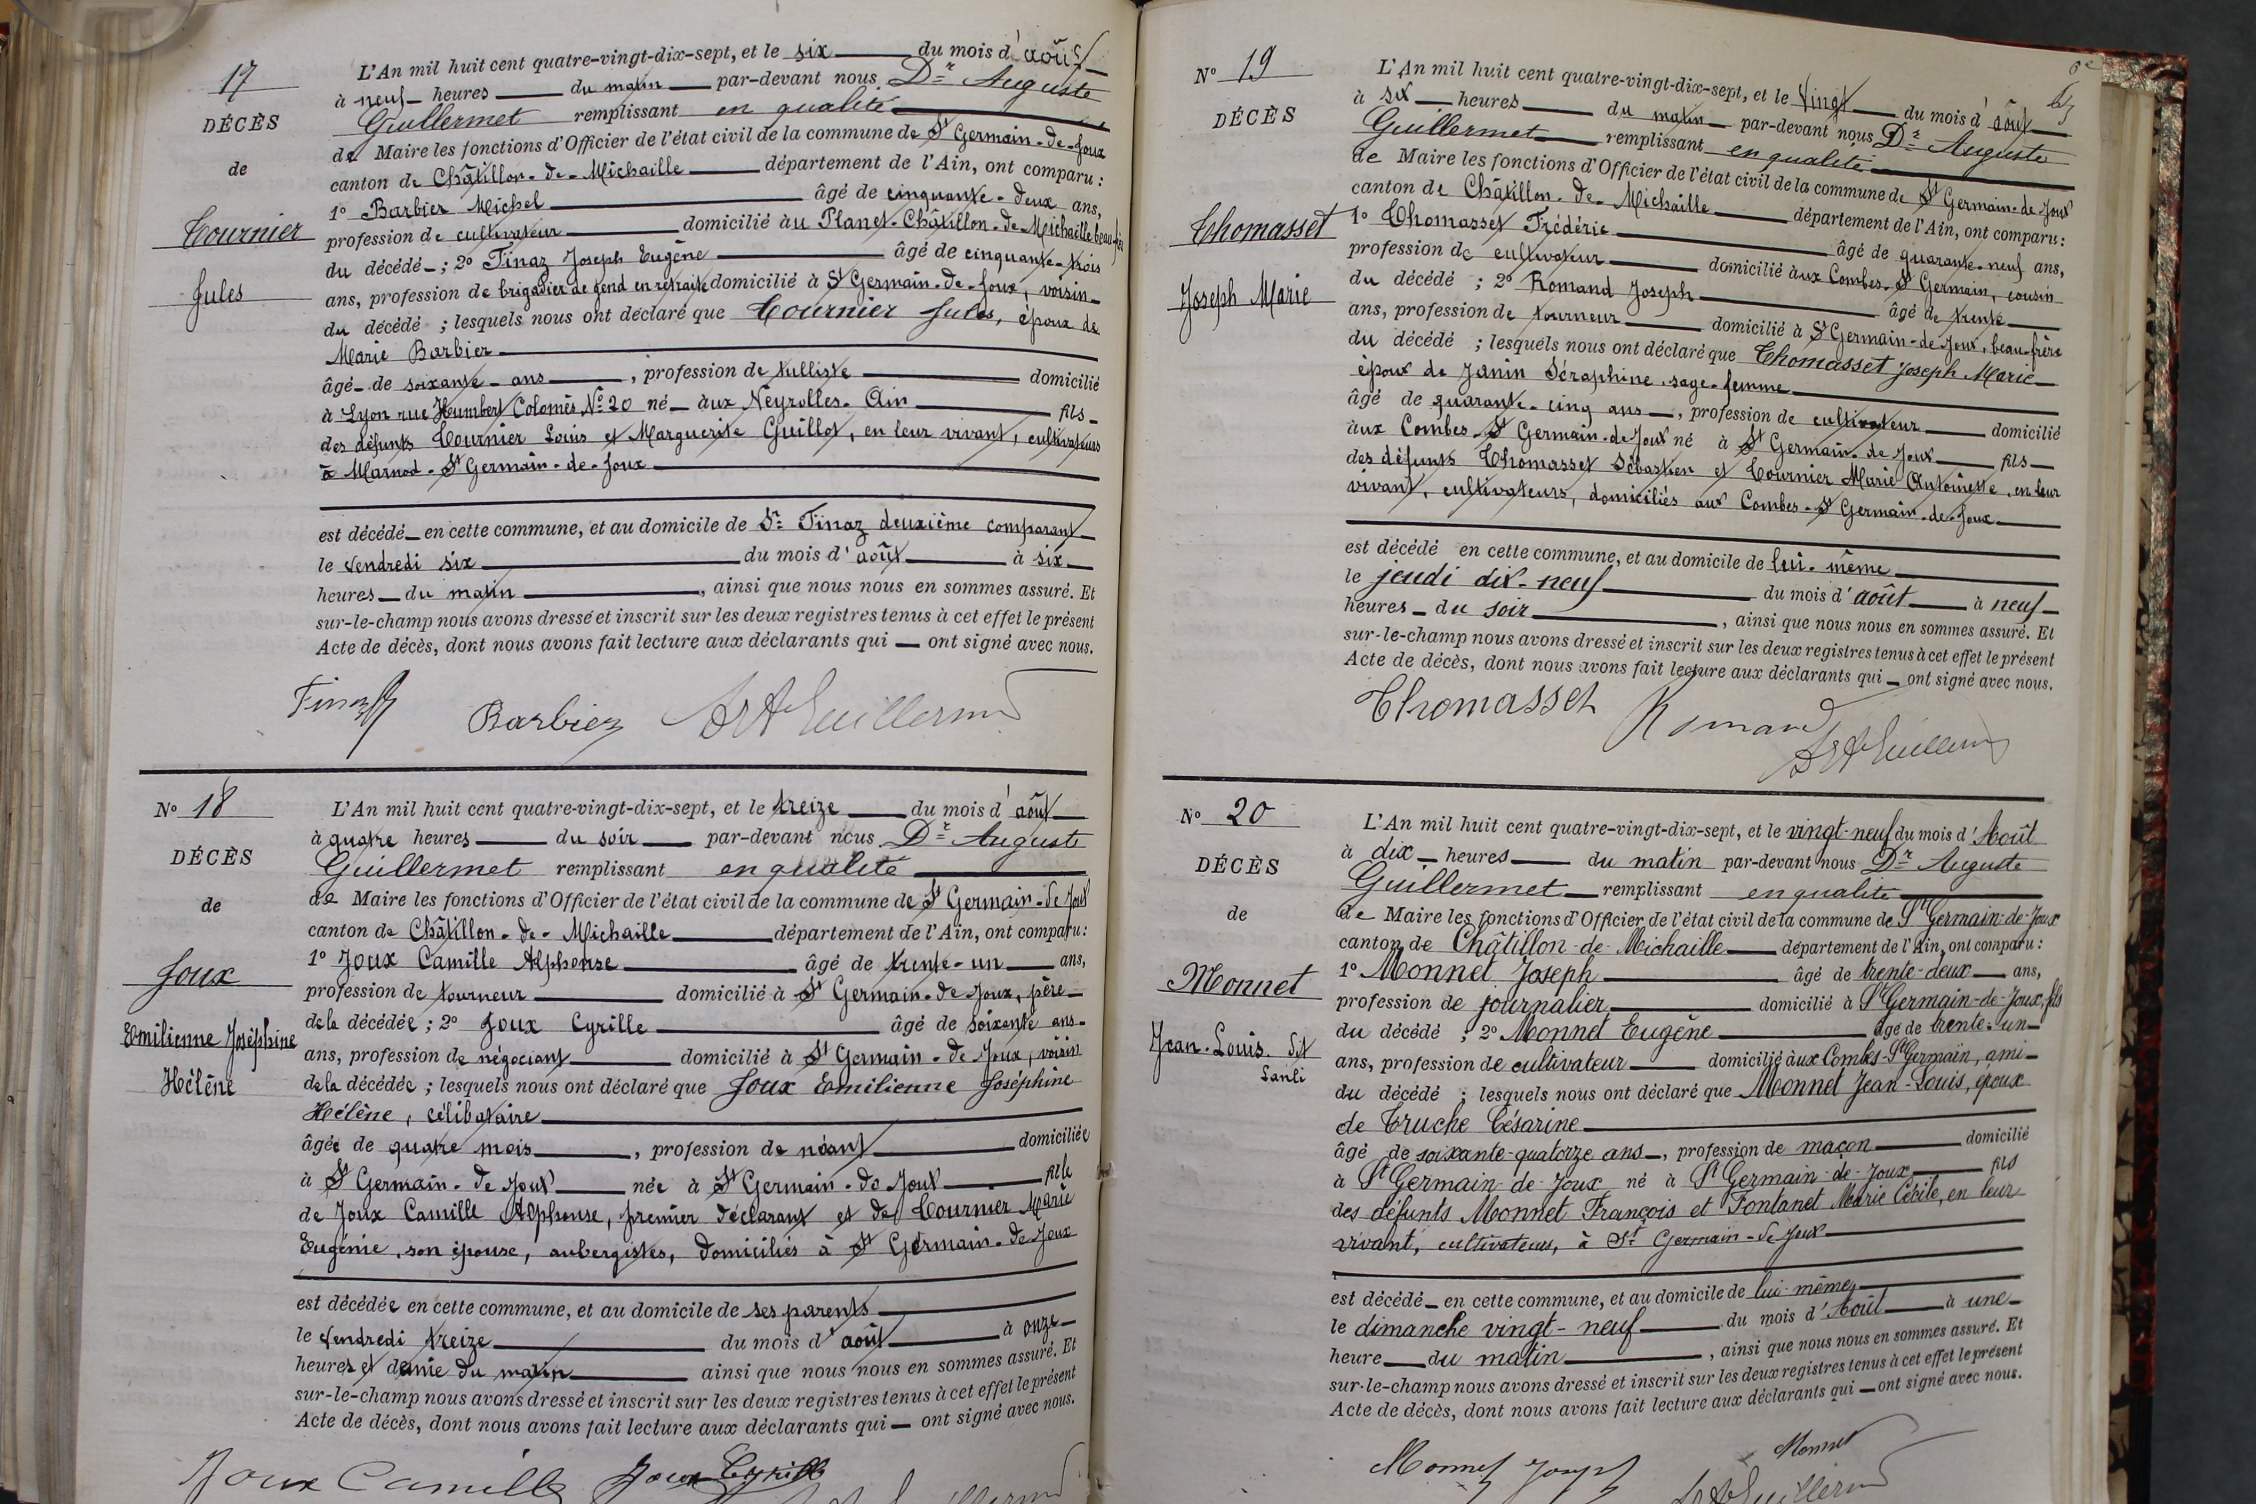 17
DÉCÈS
de
Tournier
Jules
L'An mil huit cent quatre-vingt-dix-sept, et le six du mois d'août
à neuf heures du matin par-devant nous Dr Auguste
Guillermet remplissant en qualité
de Maire les fonctions d'Officier de l'état civil de la commune de St Germain-de-Joux
canton de Châtillon-de-Michaille département de l'Ain, ont comparu :
1° Barbier Michel âgé de cinquante-deux ans,
profession de cultivateur domicilié au Planet-Châtillon-de-Michaille beau-frère
du décédé ; 2° Tinaz Joseph Eugène âgé de cinquante-trois
ans, profession de brigadier de gend en retraite domicilié à St Germain-de-Joux, voisin
du décédé ; lesquels nous ont déclaré que Tournier Jules, époux de
Marie Barbier
âgé de soixante ans, profession de tulliste domicilié
à Lyon rue Humbert Colomès, No 20 né aux Neyrolles-Ain fils
des défunts Tournier Louis et Marguerite Guillot, en leur vivant, cultivateurs
à Marnod-St Germain-de-Joux
est décédé en cette commune, et au domicile de Sr Tinaz deuxième comparant
le vendredi six du mois d'août à six
heures du matin, ainsi que nous nous en sommes assuré. Et
sur-le-champ nous avons dressé et inscrit sur les deux registres tenus à cet effet le présent
Acte de décès, dont nous avons fait lecture aux déclarants qui ont signé avec nous.
Tinaz Barbier Dr A Guillermet
No 18
DÉCÈS
de
Joux
Emilienne Joséphine
Hélène
L'An mil huit cent quatre-vingt-dix-sept, et le treize du mois d'août
à quatre heures du soir par-devant nous Dr Auguste
Guillermet remplissant en qualité
de Maire les fonctions d'Officier de l'état civil de la commune de St Germain-de-Joux
canton de Châtillon-de-Michaille département de l'Ain, ont comparu :
1° Joux Camille Alphonse âgé de trente-un ans,
profession de tourneur domicilié à St Germain-de-Joux, père
de la décédée ; 2° Joux Cyrille âgé de soixante ans
ans, profession de négociant domicilié à St Germain-de-Joux, voisin
de la décédée ; lesquels nous ont déclaré que Joux Emilienne Joséphine
Hélène, célibataire
âgée de quatre mois, profession de néant domiciliée
à St Germain-de-Joux née à St Germain-de-Joux fille
de Joux Camille Alphonse, premier déclarant et de Tournier Marie
Eugénie, son épouse, aubergistes, domiciliés à St Germain-de-Joux
est décédée en cette commune, et au domicile de ses parents
le vendredi treize du mois d'août à onze
heures et demie du matin ainsi que nous nous en sommes assuré. Et
sur-le-champ nous avons dressé et inscrit sur les deux registres tenus à cet effet le présent
Acte de décès, dont nous avons fait lecture aux déclarants qui ont signé avec nous.
Joux Camille Joux Cyrille
No 19
DÉCÈS
Thomasset
Joseph Marie
L'An mil huit cent quatre-vingt-dix-sept, et le vingt du mois d'août
à six heures du matin par-devant nous Dr Auguste
Guillermet remplissant en qualité
de Maire les fonctions d'Officier de l'état civil de la commune de St Germain-de-Joux
canton de Châtillon-de-Michaille département de l'Ain, ont comparu :
1° Thomasset Frédéric âgé de quarante-neuf ans,
profession de cultivateur domicilié aux Combes-St Germain, cousin
du décédé ; 2° Romand Joseph âgé de trente
ans, profession de tourneur domicilié à St Germain-de-Joux, beau-frère
du décédé ; lesquels nous ont déclaré que Thomasset Joseph Marie
époux de Janin Séraphine, sage-femme
âgé de quarante-cinq ans, profession de cultivateur domicilié
aux Combes-St Germain-de-Joux né à St Germain-de-Joux fils
des défunts Thomasset Sébastien et Tournier Marie Antoinette, en leur
vivant, cultivateurs, domiciliés aux Combes-St Germain-de-Joux
est décédé en cette commune, et au domicile de lui-même
le jeudi dix-neuf du mois d'août à neuf
heures du soir, ainsi que nous nous en sommes assuré. Et
sur-le-champ nous avons dressé et inscrit sur les deux registres tenus à cet effet le présent
Acte de décès, dont nous avons fait lecture aux déclarants qui ont signé avec nous.
Thomasset Romand
Dr A Guillermet
No 20
DÉCÈS
de
Monnet
Jean-Louis dit
Sanli
L'An mil huit cent quatre-vingt-dix-sept, et le vingt-neuf du mois d'Août
à dix heures du matin par-devant nous Dr Auguste
Guillermet remplissant en qualité
de Maire les fonctions d'Officier de l'état civil de la commune de St Germain-de-Joux
canton de Châtillon-de-Michaille département de l'Ain, ont comparu :
1° Monnet Joseph âgé de trente-deux ans,
profession de journalier domicilié à St Germain-de-Joux, fils
du décédé ; 2° Monnet Eugène âgé de trente-un
ans, profession de cultivateur domicilié aux Combes-St Germain, ami
du décédé ; lesquels nous ont déclaré que Monnet Jean-Louis, époux
de Truche Césarine
âgé de soixante-quatorze ans, profession de maçon domicilié
à St Germain-de-Joux né à St Germain-de-Joux fils
des défunts Monnet François et Fontanet Marie Cécile, en leur
vivant, cultivateurs, à St Germain-de-Joux
est décédé en cette commune, et au domicile de lui-même
le dimanche vingt-neuf du mois d'Août à une
heure du matin, ainsi que nous nous en sommes assuré. Et
sur-le-champ nous avons dressé et inscrit sur les deux registres tenus à cet effet le présent
Acte de décès, dont nous avons fait lecture aux déclarants qui ont signé avec nous.
Monnet Joseph Monnet
Dr A Guillermet